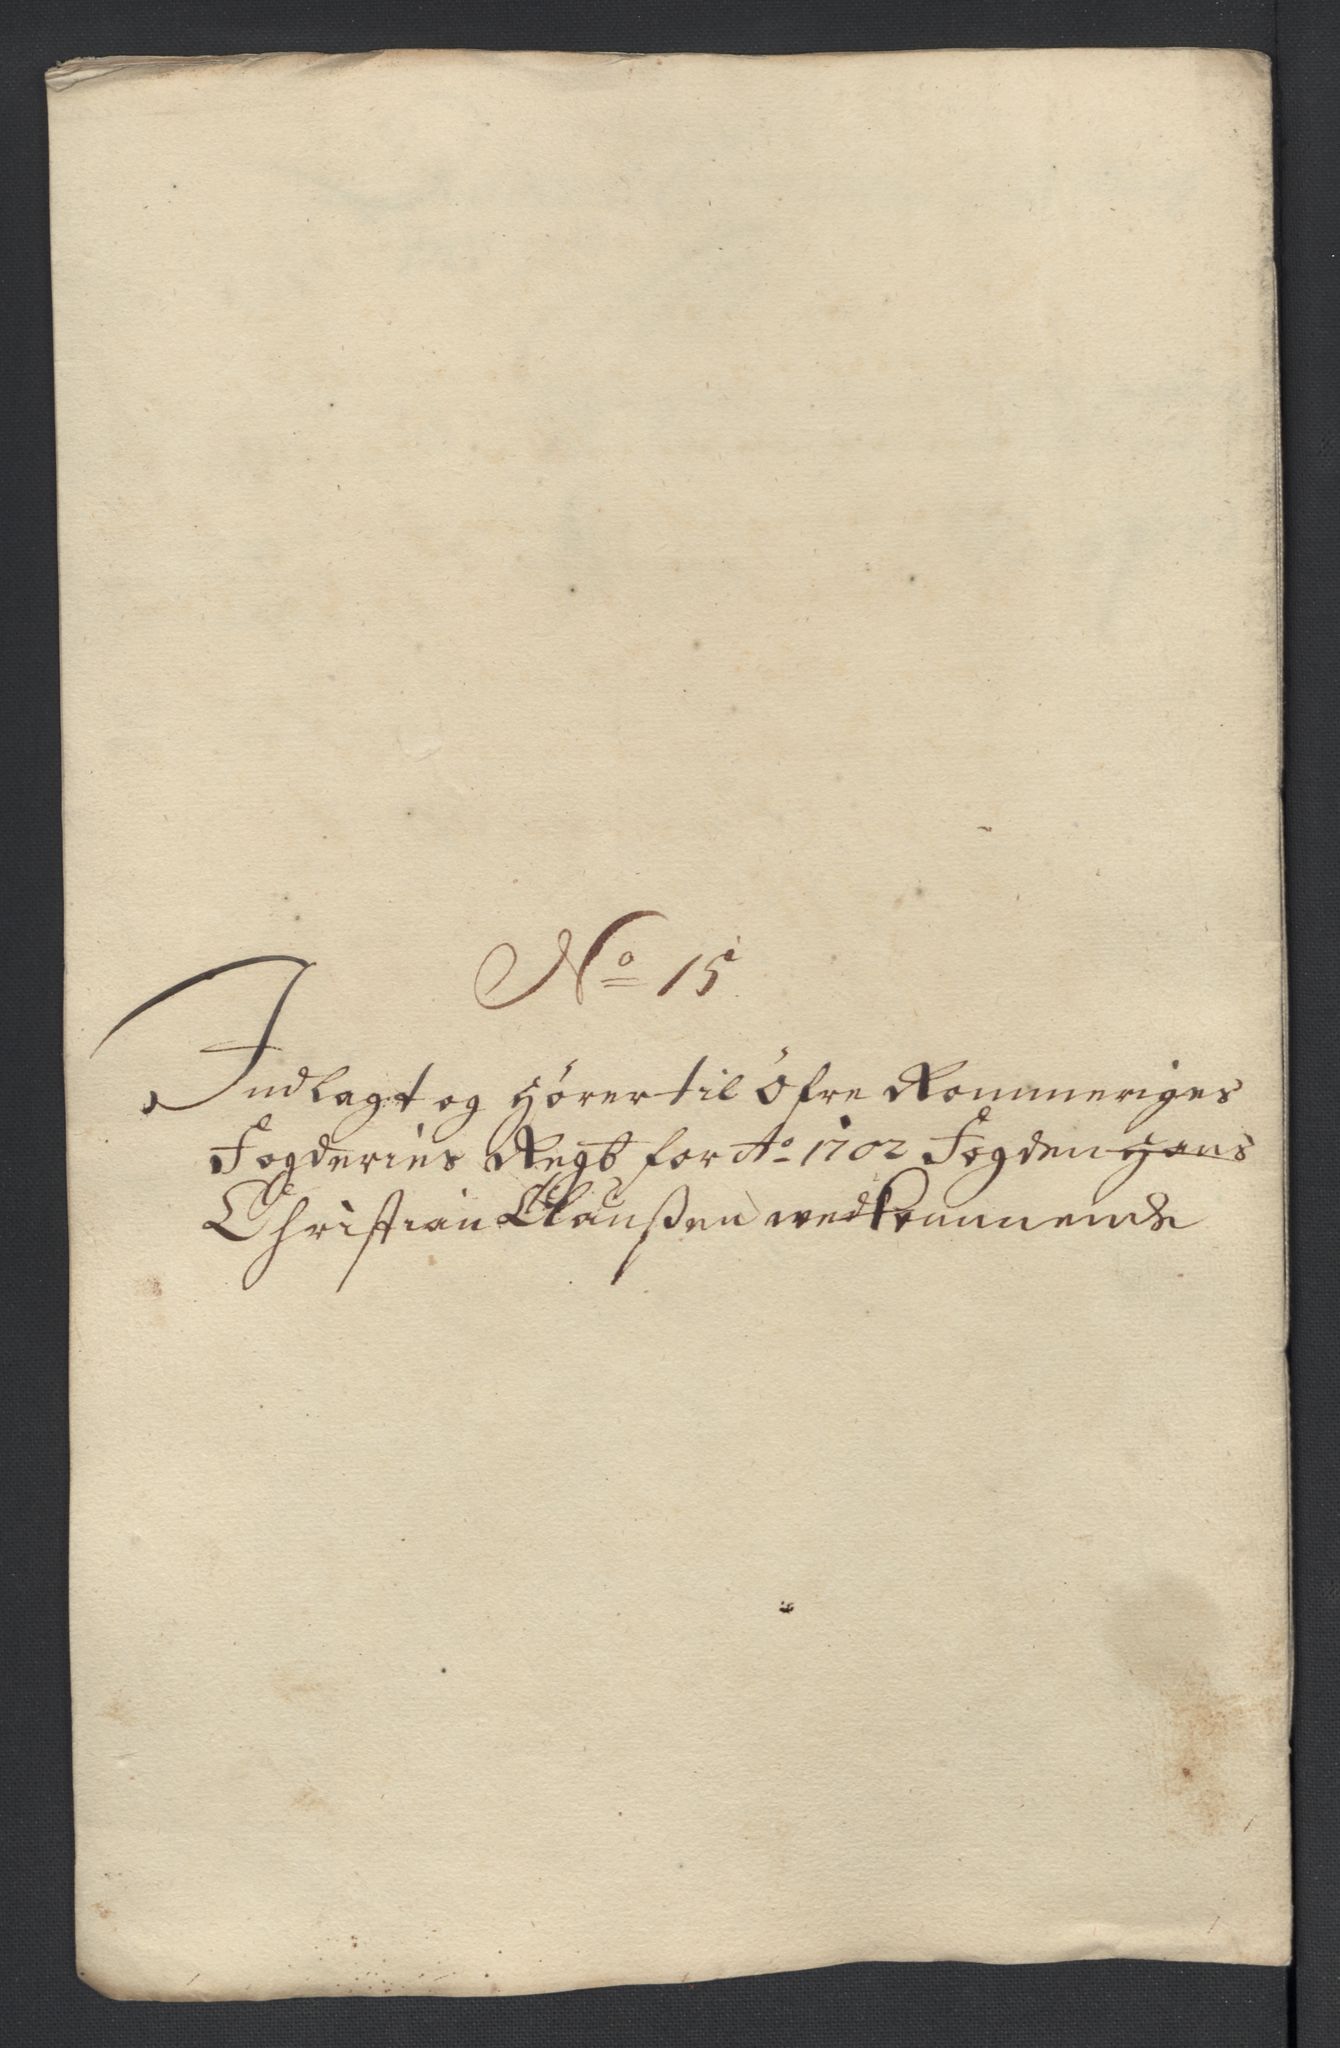 No 15
Indlagt og hörer til Öfre Rommeriges
Fogderies Regb for Ao 1702 Fogden Hans
Christian Claußen vedkommende